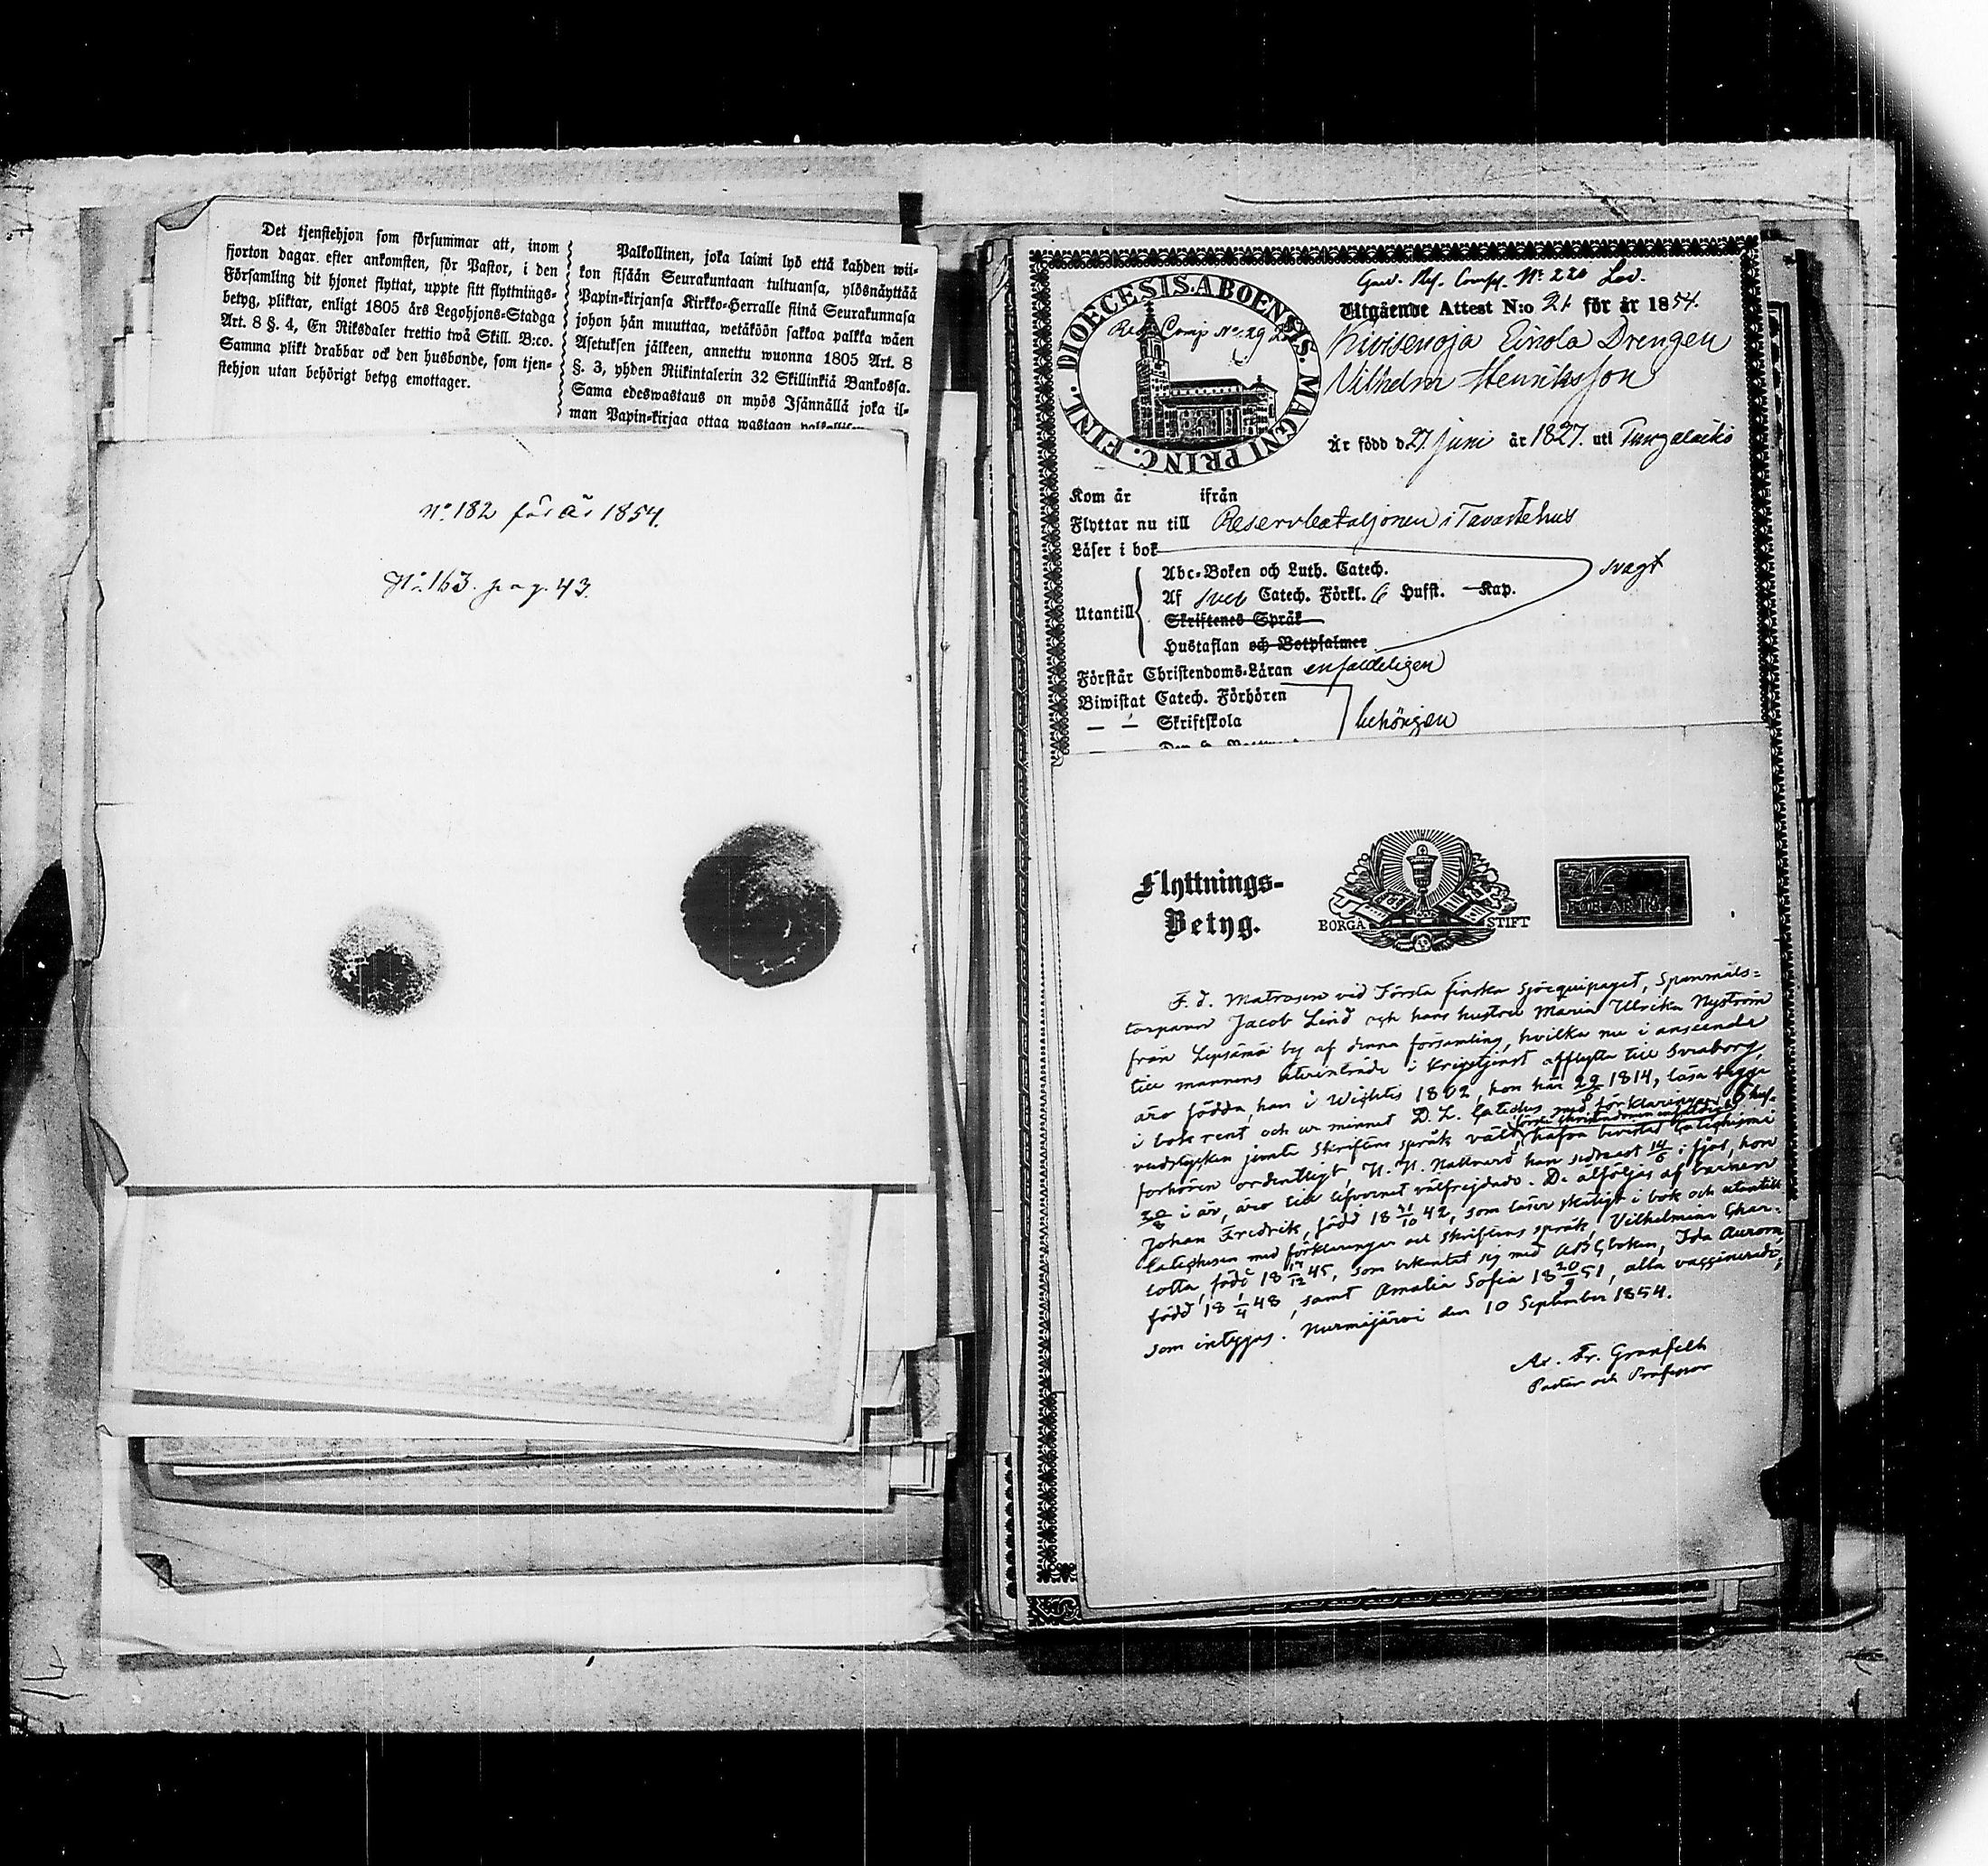 Det tjenstehjon som försummar att, inom
fjorton dagar efter ankomsten, för Pastor, i den
Församling dit hjonet flyttat, uppte sitt flyttnings-
betyg, pliktar, enligt 1805 års Legohjons-Stadga
Art. 8 §. 4, En Riksdaler trettio twå Skill. B:co.
Samma plikt drabbar ock den husbonde, som tjen-
stehjon utan behörigt betyg emottager.
Palkollinen, joka laimi lyö että kahden wii-
kon sisään Seurakuntaan tultuansa, ylösnäyttää
Papin-kirjansa Kirkko-Herralle siinä Seurakunnasa
johon hän muuttaa, wetäköön sakkoa palkka wäen
Asetuksen jälkeen, annettu wuonna 1805 Art. 8
§. 3, yhden Riikintalerin 32 Skillinkiä Bankossa.
Sama edeswastaus on myös Isännällä joka il-
man Papin-kirjaa ottaa wastaan
No. 182 för år 1854.
No. 163. pag. 43.
No. 220
DIOECESIS. ABOENSIS. MAGNI PRINC. FINL.
Utgående Attest N:o 21 för år 1854.
Drengen
Vilhelm Henriksson
Är född d. 27 Juni år 1827. uti
Kom år ifrån
Flyttar nu till Reservbataljonen i Tavastehus
Läser i bok
Utantill
Abc-Boken och Luth. Catech.
Af Sveb Catech. Förkl. 6 Hufst. Kap.
Skriftenes Språk
Hustaflan och Botpsalmer
svagt
Förstår Christendoms-Läran enfaldeligen
Biwistat Catech. Förhören
— — Skriftskola
behörigen
Flyttnings-
Betyg.
BORGÅ STIFT
FÖR ÅR 18
F. d. Matrosen vid Första finska Sjöequipaget, Spannmåls-
torparen Jacob Lind och hans hustru Maria Ulrika Nyström
från Lepsämä by af denna församling, hvilka nu i anseende
till mannens återinträde i krigstjenst afflytta till Sveaborg,
äro födda, han i Wichtis 1802, hon här 1814, läsa begge
i bok rent och ur minnet D. L. Catches med förklaringar, 6 huf-
vudstycken jemte Skriftens språk väl, hafva bivistat Catechismi
förhören ordentligt, H. H. Nattvard han sednast 14/6 i fjöl, hon
i år, äro till lefvernet välfrejdade. De åtföljas af barnen
Johan Fredrik, född 18 /10 42, som läser skäligt i bok och utantill
Catechesen med förklaringar och skriftens språk, Vilhelmina Char-
lotta, född 18 /12 45, som bekantat sig med ABCboken, Ida Aurora,
född 18 1/4 48, samt Amalia Sofia 18 20/9 51, alla vaccinerade,
som intygas. Nurmijärvi den 10 September 1854.
Ax. Fr. Granfelt
Pastor och Professor